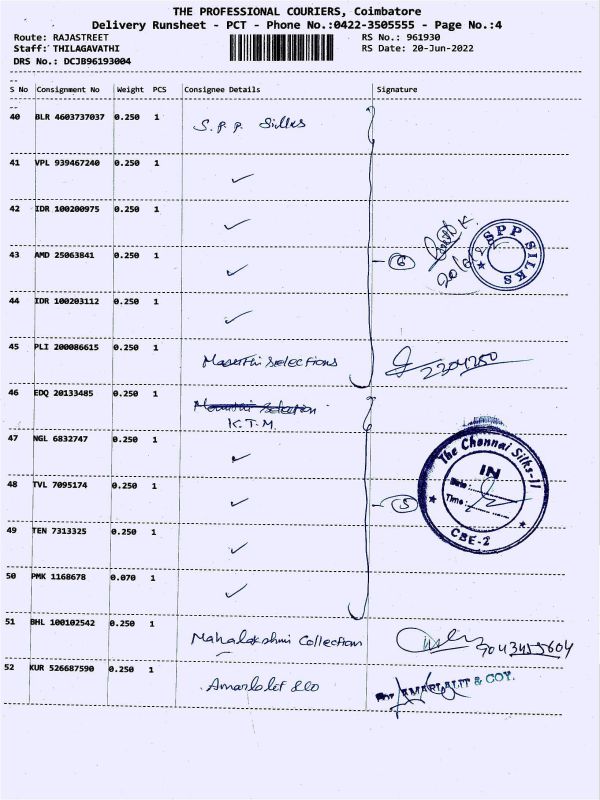 THE PROFESSIONAL COURIERS, Coimbatore
Delivery Runsheet - PCT - Phone No.:0422-3505555 - Page No.:4
Route: RAJASTREET RS No.: 961930
Staff: THILAGAVATHI RS Date: 20-Jun-2022
DRS No.: DCJB96193004
S No Consignment No Weight PCS Consignee Details Signature
40 BLR 4603737037 0.250 1 S.P.P. Silks
41 VPL 939467240 0.250 1 ✓
42 IDR 100200975 0.250 1 ✓
43 AMD 25063841 0.250 1 ✓ 6 SPP SILKS
44 IDR 100203112 0.250 1 ✓
45 PLI 200086615 0.250 1 Maruthi selections 2304250
46 EDQ 20133485 0.250 1 K.T.M.
47 NGL 6832747 0.250 1 ✓
48 TVL 7095174 0.250 1 ✓ 5 The Chennai Silks-II IN Date Time: CBE-2
49 TEN 7313325 0.250 1 ✓
50 PMK 1168678 0.070 1 ✓
51 BHL 100102542 0.250 1 Mahalakshmi Collection 9043455604
52 KUR 526687590 0.250 1 Amarlalit &co For AMARLALIT & COY.